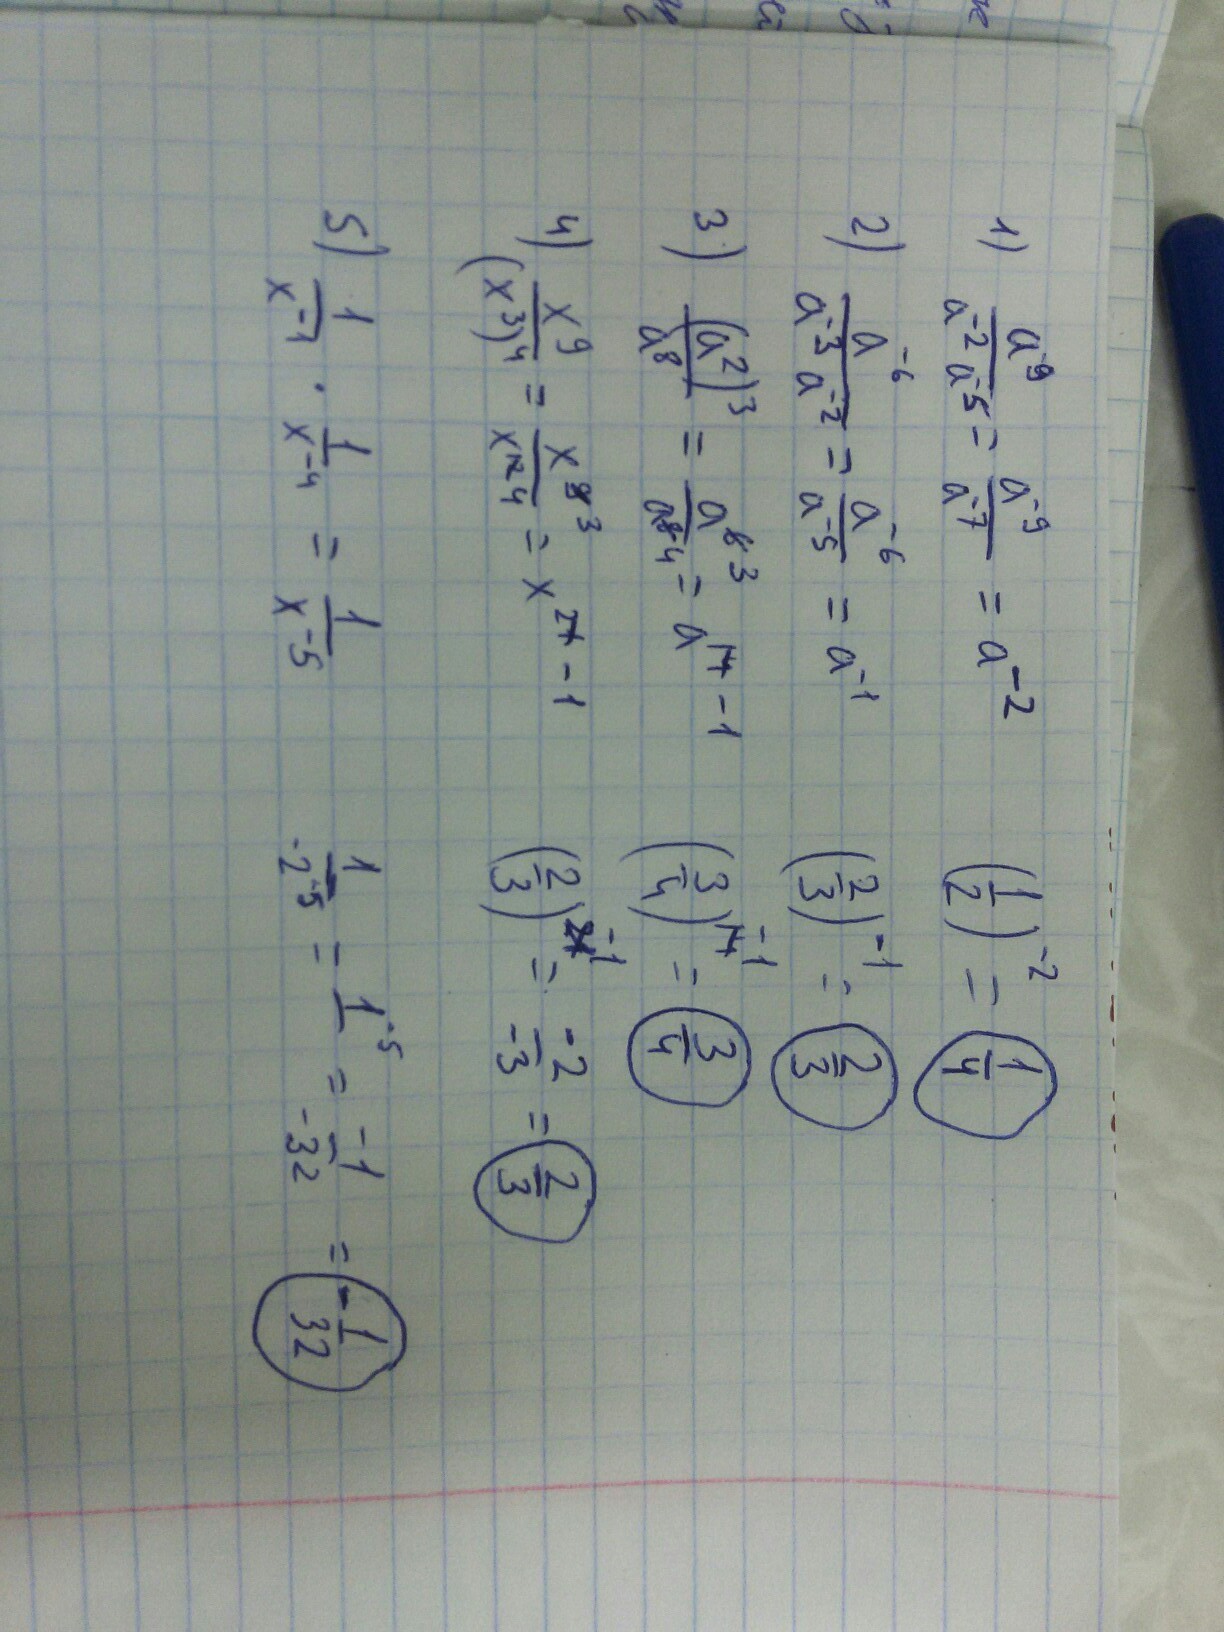 1) a^-9 / (a^-2 a^-5) = a^-9 / a^-7 = a^-2 (1/2)^-2 = 1/4
2) a^-6 / (a^-3 a^-2) = a^-6 / a^-5 = a^-1 (2/3)^-1 = 2/3
3) (a^2)^3 / a^8 = a^3 / a^4 = a^-1 (3/4)^-1 = 3/4
4) x^9 / (x^3)^4 = x^3 / x^4 = x^-1 (2/3)^-1 = -2/-3 = 2/3
5) 1/x^-1 · 1/x^-4 = 1/x^-5 1/-2^-5 = 1^-5 = -1/-32 = -1/32